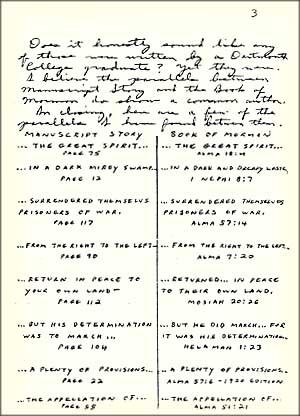 3
Does it honestly sound like any
of those were written by a Dartmouth
College graduate? Yet they were.
I believe the parallels between
Manuscript Story and the Book of
Mormon do show a common author.
In closing, here are a few of the
parallels I have found between them.
MANUSCRIPT STORY BOOK OF MORMON
...THE GREAT SPIRIT... ...THE GREAT SPIRIT...
PAGE 75 ALMA 18:4
...IN A DARK MIREY SWAMP... ...IN A DARK AND DREARY WASTE,
PAGE 13 I NEPHI 8:7
SURRENDERED THEMSELVS SURRENDERED THEMSELVES
PRISONERS OF WAR. PRISONERS OF WAR.
PAGE 117 ALMA 57:14
...FROM THE RIGHT TO THE LEFT— ...FROM THE RIGHT TO THE LEFT...
PAGE 90 ALMA 7:20
...RETURN IN PEACE TO ...RETURNED... IN PEACE
YOUR OWN LAND— TO THEIR OWN LAND.
PAGE 112 MOSIAH 20:26
...BUT HIS DETERMINATION BUT HE DID MARCH... FOR IT
WAS TO MARCH... WAS HIS DETERMINATION.
PAGE 104 HELAMAN 1:23
...A PLENTY OF PROVISIONS... ...A PLENTY OF PROVISIONS.
PAGE 22 ALMA 57:6 - 1920 EDITION
...THE APPELATION OF... ...THE APPELATION OF...
PAGE 55 ALMA 51:21